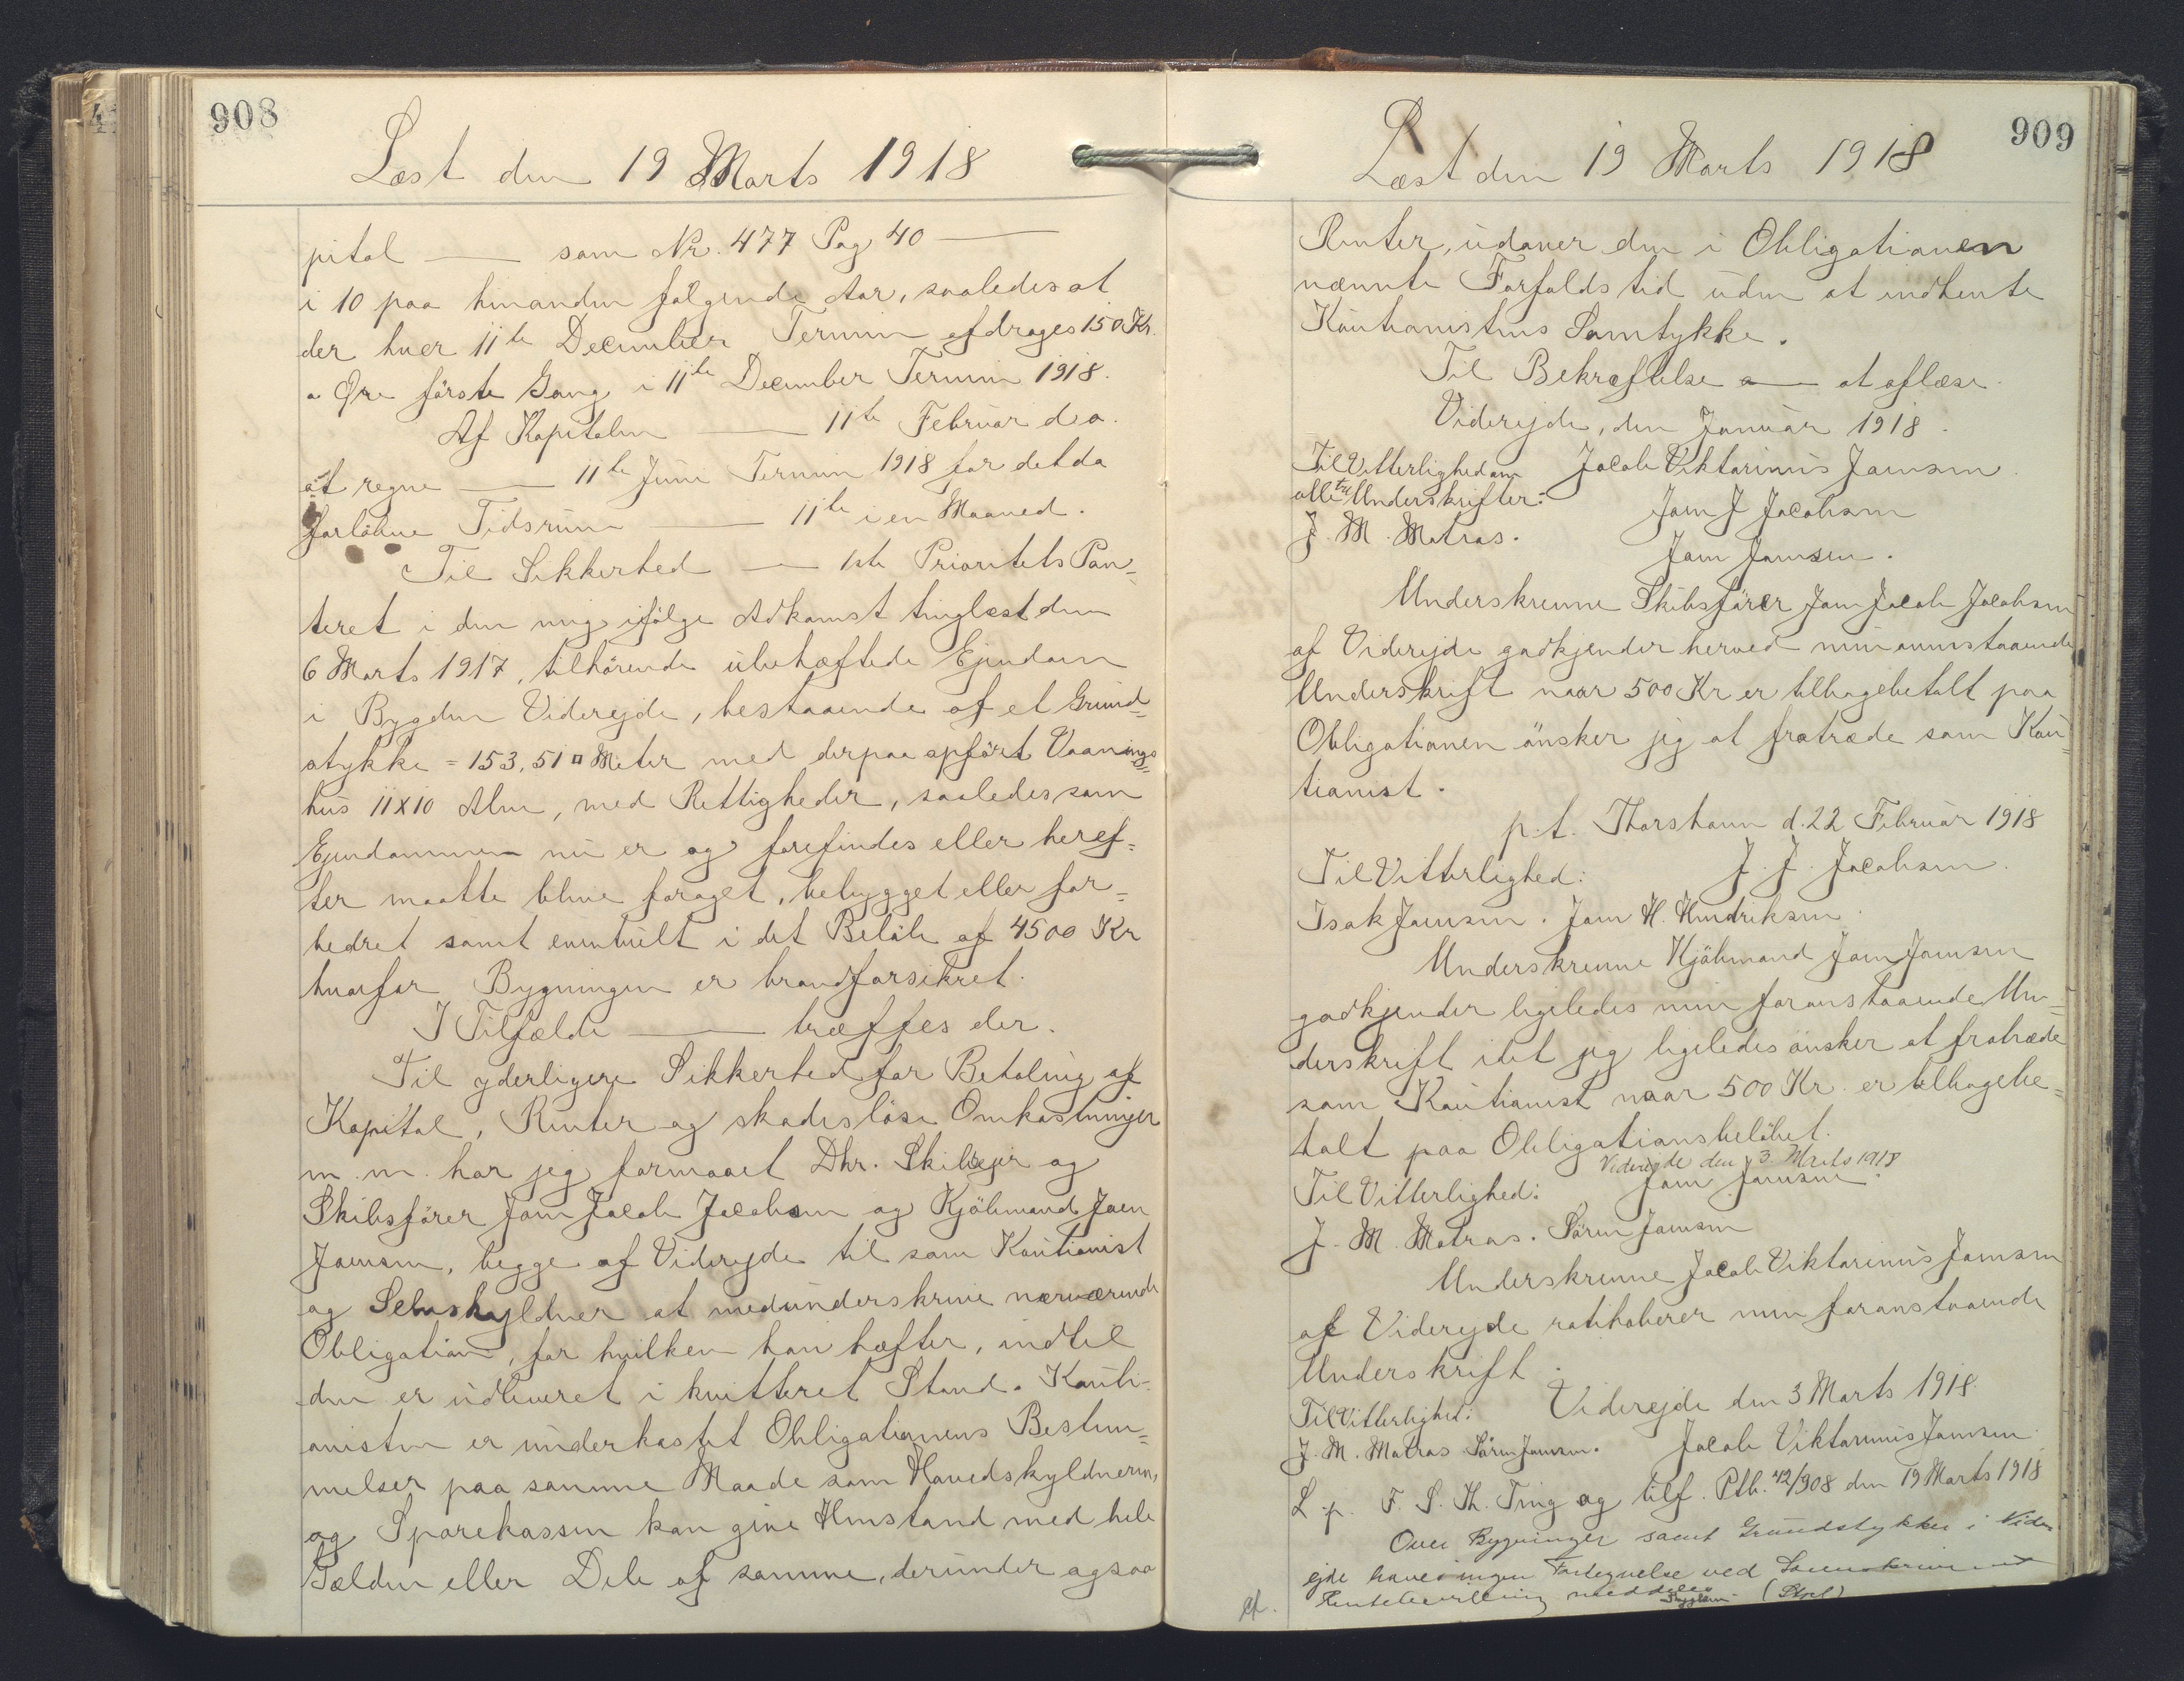 908
Læst den 19 Marts 1918
pital — som Nr. 477 Pag 40 —
i 10 paa hinanden følgende Aar, saaledes at
der hver 11te December Termin afdrages 150 Kr.
0 Øre første Gang i 11te December Termin 1918.
Af Kapitalen — 11te Februar d. a.
at regne — 11te Juni Termin 1918 for det da
forløbne Tidsrum — 11te i en Maaned.
Til Sikkerhed — 1ste Prioritets Pan=
teret i den mig ifølge Adkomst tinglæst den
6 Marts 1917, tilhørende ubehæftede Ejendom
i Bygden Viderejde, bestaaende af et Grund=
stykke = 153,51 □ Meter med derpaa opført Vaanings=
hus 11 x 10 Alen, med Rettigheder, saaledes som
Ejendommen nu er og forefindes eller heref=
ter maatte blive forøget, bebygget eller for=
bedret samt eventuelt i det Beløb af 4500 Kr
hvorfor Bygningen er brandforsikret.
I Tilfælde — træffes der.
Til yderligere Sikkerhed for Betaling af
Kapital, Renter og skadesløse Omkostninger
m. m. har jeg formaaet Dhr. Skibsejer og
Skibsfører Joen Jacob Jacobsen og Kjøbmand Joen
Joensen, begge af Viderejde til som Kautionist
og Selvskyldner at medunderskrive nærværende
Obligation, for hvilken han hæfter, indtil
den er udleveret i kvitteret Stand. Kauti=
onisten er underkastet Obligationens Bestem=
melser paa samme Maade som Hovedskyldneren,
og Sparekassen kan give Henstand med hele
Gælden eller Dele af samme, derunder ogsaa
909
Læst den 19 Marts 1918
Renter, udover den i Obligationen
nævnte Forfaldstid uden at indhente
Kautionistens Samtykke.
Til Bekræftelse — at aflæse.
Viderejde, den Januar 1918.
Til Vitterlighed om Jacob Viktorinus Joensen
alle tre Underskrifter: Joen J Jacobsen
J. M. Matras. Joen Joensen.
Underskrevne Skibsfører Joen Jacob Jacobsen
af Viderejde godkjender herved min ovenstaaende
Underskrift naar 500 Kr er tilbagebetalt paa
Obligationen ønsker jeg at fratræde som Kau=
tionist.
p.t. Thorshavn d. 22 Februar 1918
Til Vitterlighed: J. J. Jacobsen.
Isak Joensen. Joen H. Hendriksen.
Underskrevne Kjøbmand Joen Joensen
godkjender ligeledes min foranstaaende Un=
derskrift idet jeg ligeledes ønsker at fratræde
som Kautionist naar 500 Kr. er tilbagebe=
talt paa Obligationsbeløbet.
Viderejde den 3 Marts 1918
Til Vitterlighed: Joen Joensen.
J. M. Matras. Søren Joensen
Underskrevne Jacob Viktorinus Joensen
af Viderejde ratihaberer min foranstaaende
Underskrift.
Viderejde den 3 Marts 1918.
Til Vitterlighed:
J. M. Matras Søren Joensen. Jacob Viktorinus Joensen
L. p. F. S. Th. Ting og tilf. Ptb. 42/908 den 19 Marts 1918
Over Bygninger samt Grundstykker i Vider
ejde haves ingen Fortegnelse ved
meddeles (Stpl)